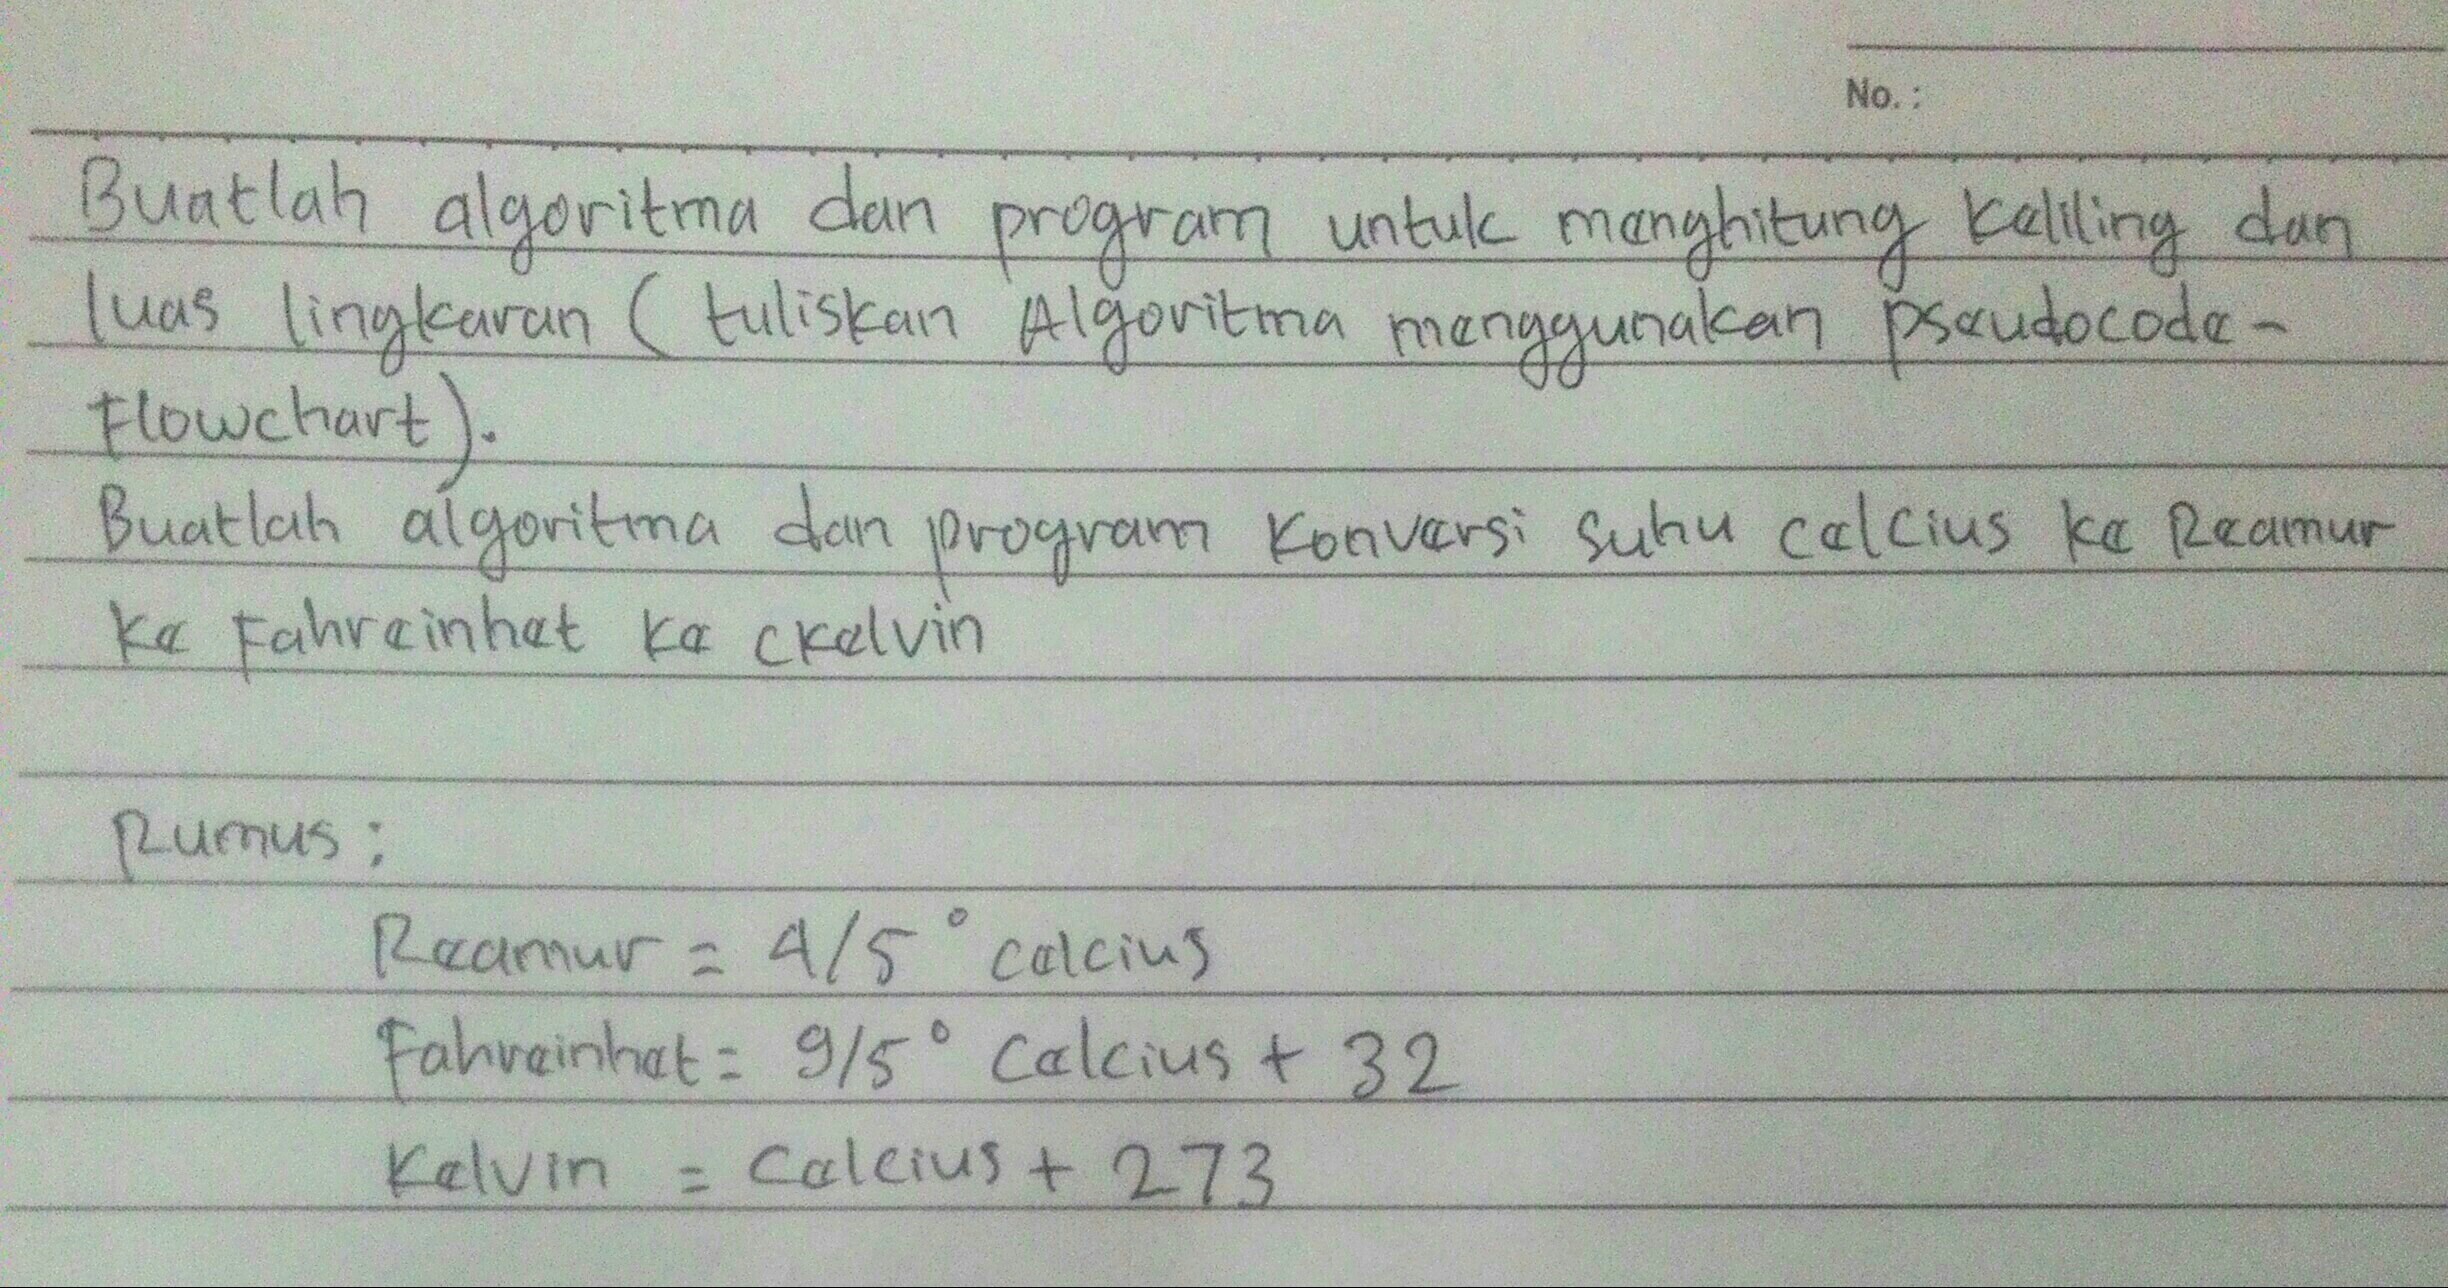 No. :
Buatlah algoritma dan program untuk menghitung keliling dan
luas lingkaran ( tuliskan Algoritma menggunakan pseudocode -
Flowchart ).
Buatlah algoritma dan program konversi suhu celcius ke Reamur
ke Fahreinhet ke ckelvin
Rumus :
Reamur = 4/5 ° celcius
Fahreinhet = 9/5 ° celcius + 32
Kelvin = Celcius + 273